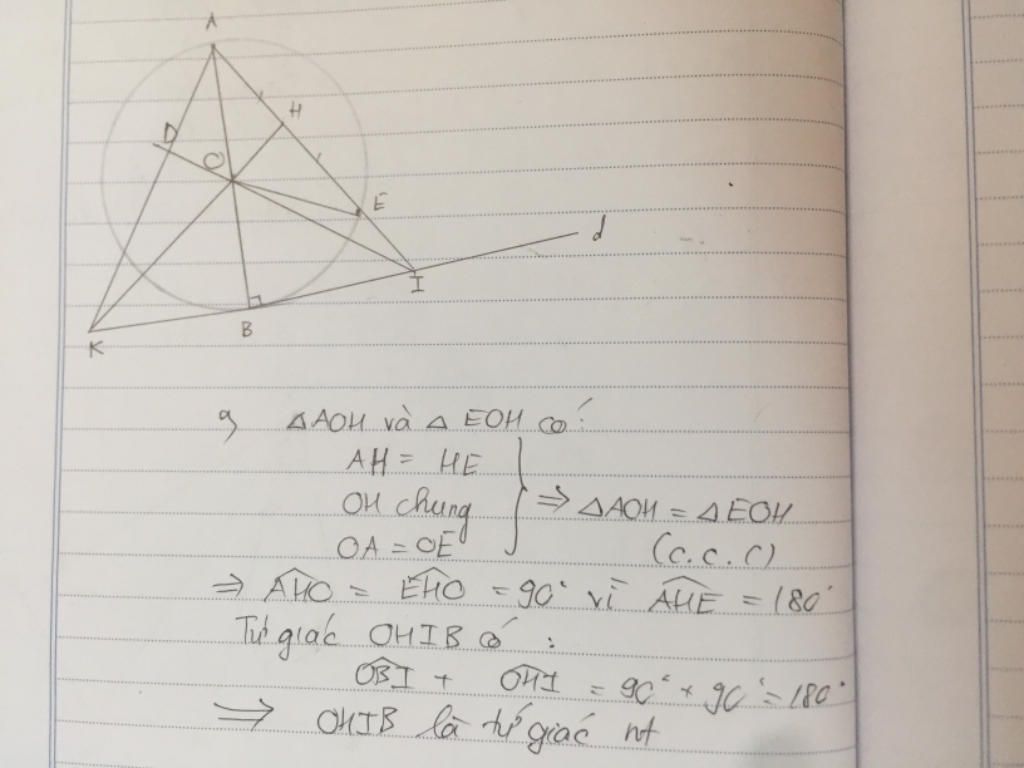 A
H
D
O
E
d
I
B
K
a) △AOH và △EOH có:
AH = HE
OH chung
OA = OE
⇒ △AOH = △EOH
(c.c.c)
⇒ ∠AHO = ∠EHO = 90° vì ∠AHE = 180°
Tứ giác OHIB có :
∠OBI + ∠OHI = 90° + 90° = 180°
⇒ OHIB là tứ giác nt